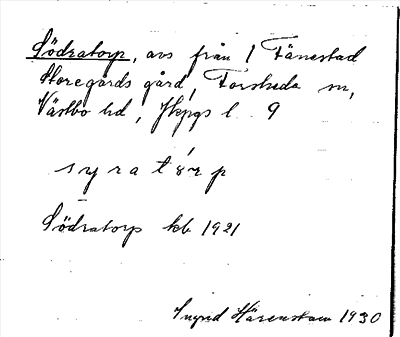 Södratorp, avs från 1 Tånestad
Storegårds gård, Forsheda sn,
Västbo hd, Jkpgs l. 9
syratórp
Södratorp kb 1921
Ingrid Härenstam 1930